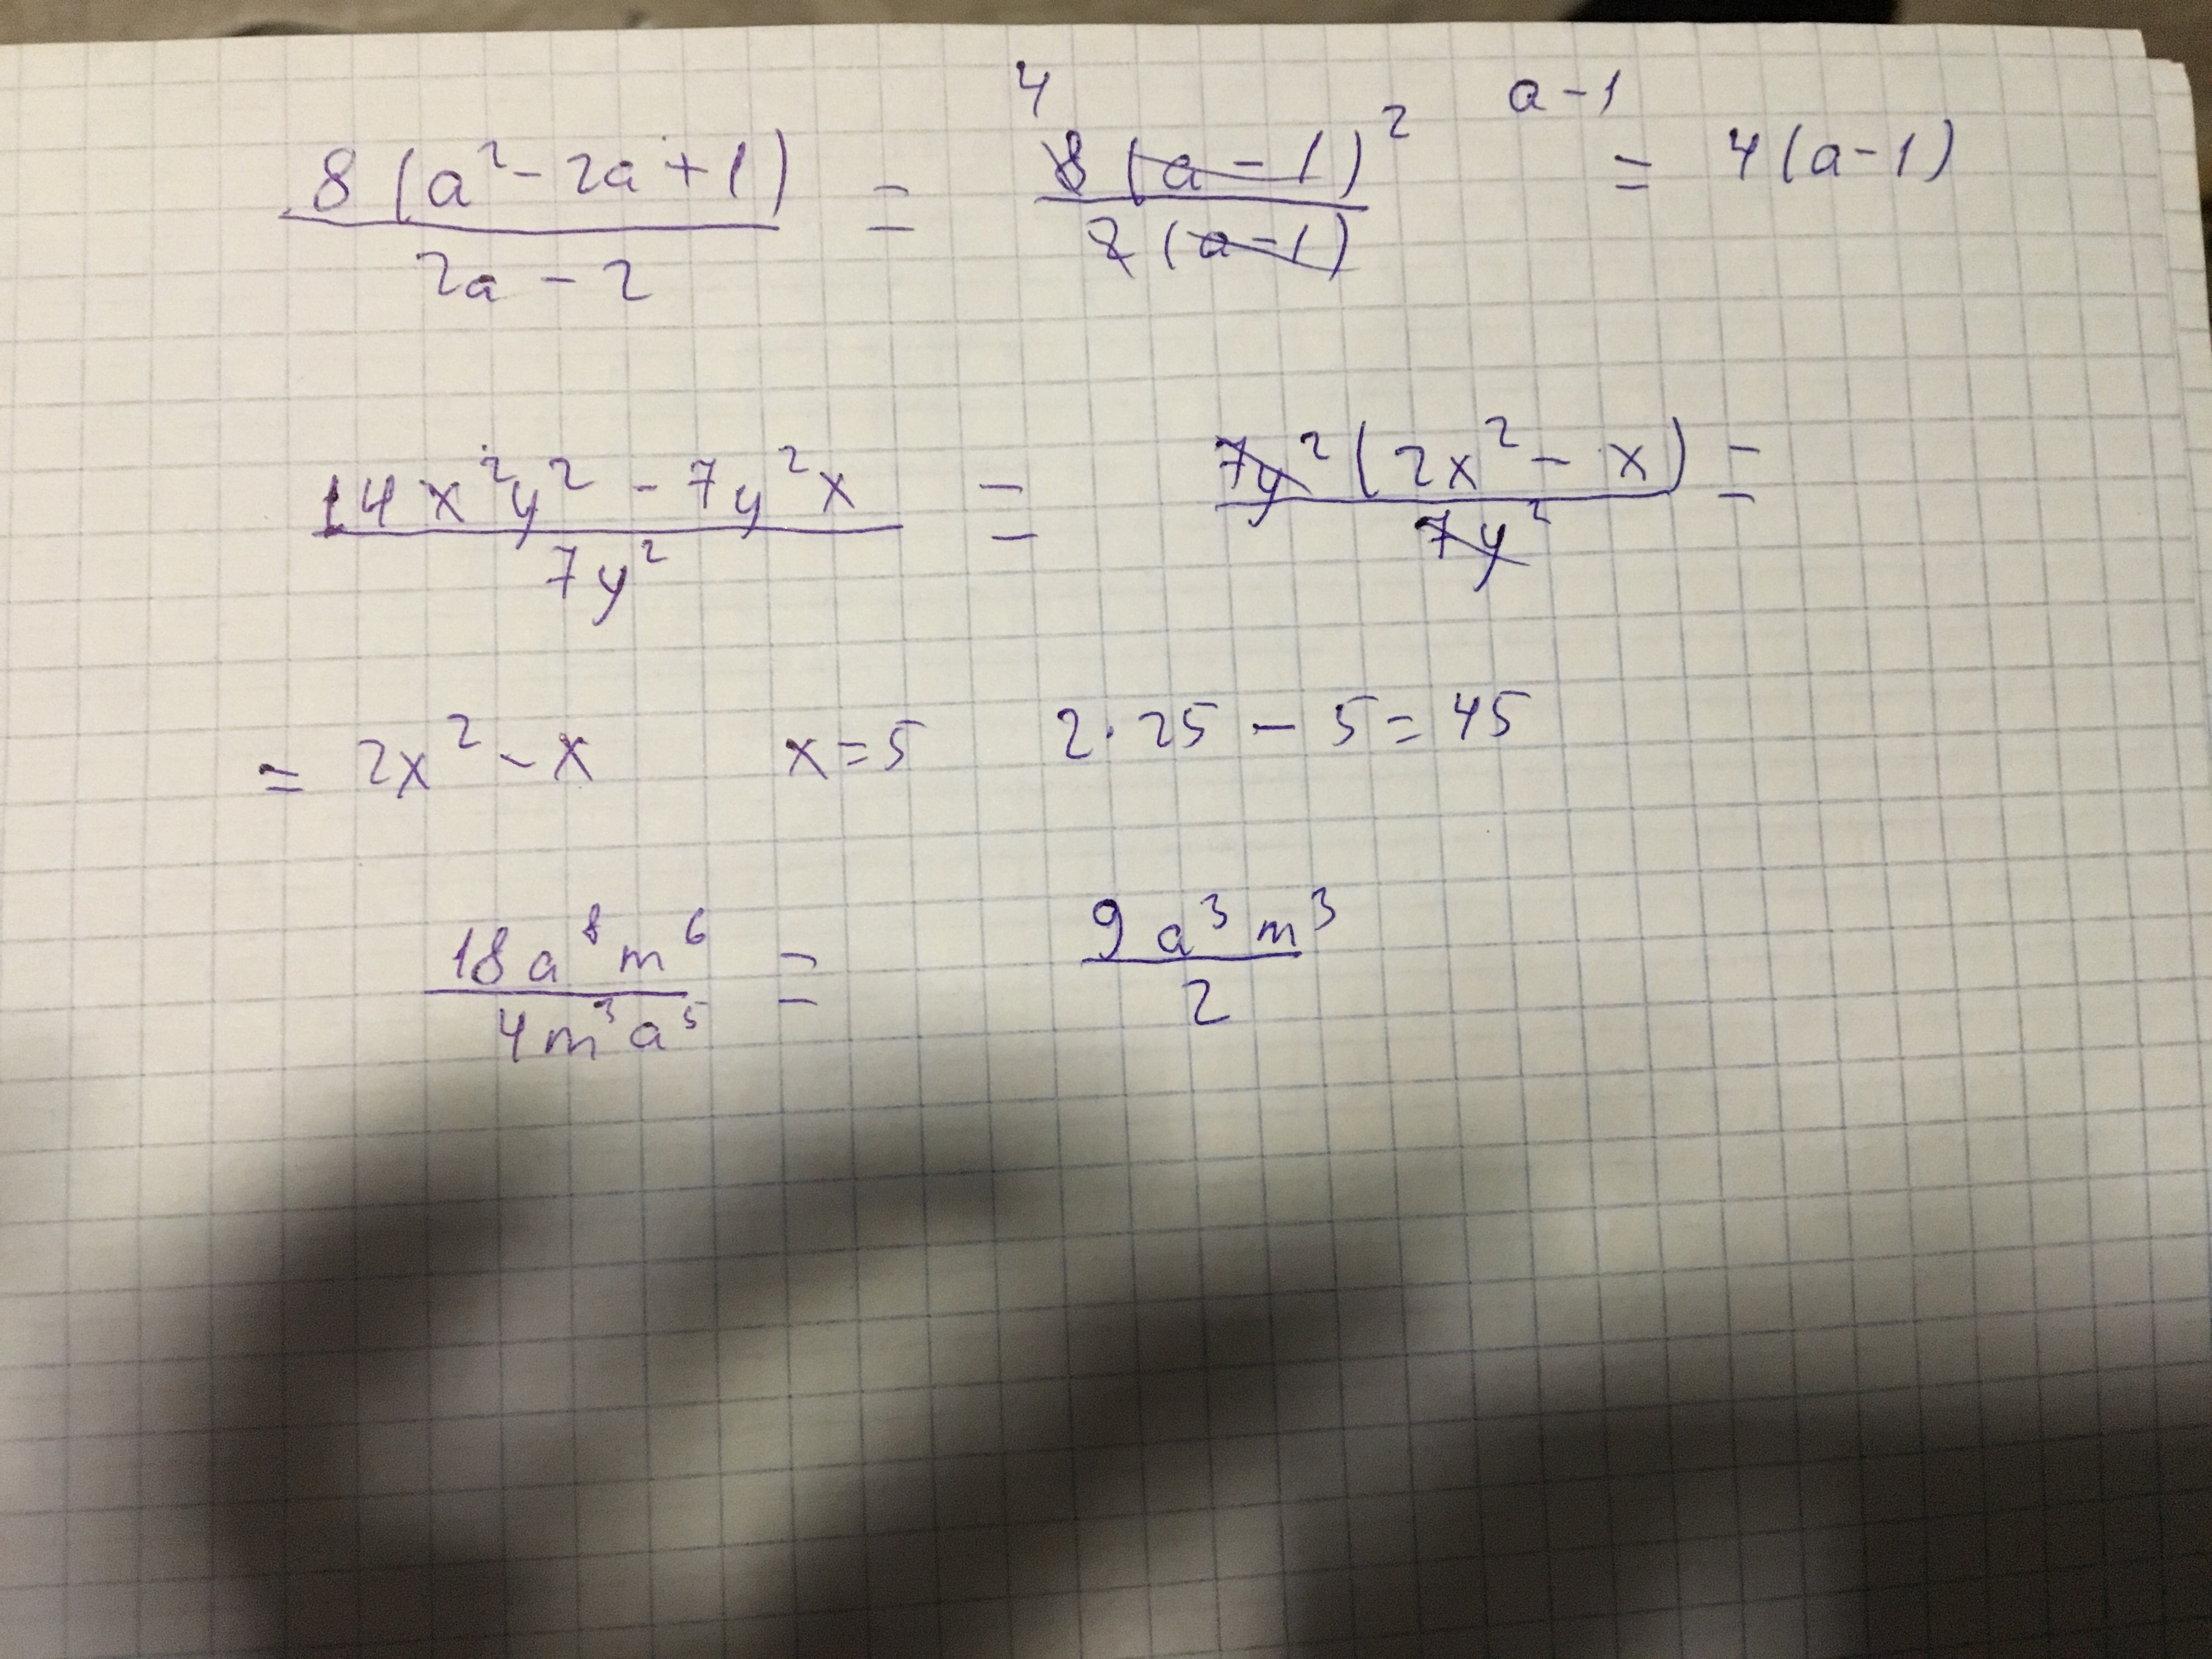 8(a² - 2a + 1) / 2a - 2 = 4 8(a - 1)² / 2(a - 1) a - 1 = 4(a - 1)
14x²y² - 7y²x / 7y² = 7y²(2x² - x) / 7y² =
= 2x² - x x = 5 2 · 25 - 5 = 45
18a⁸m⁶ / 4m³a⁵ = 9a³m³ / 2